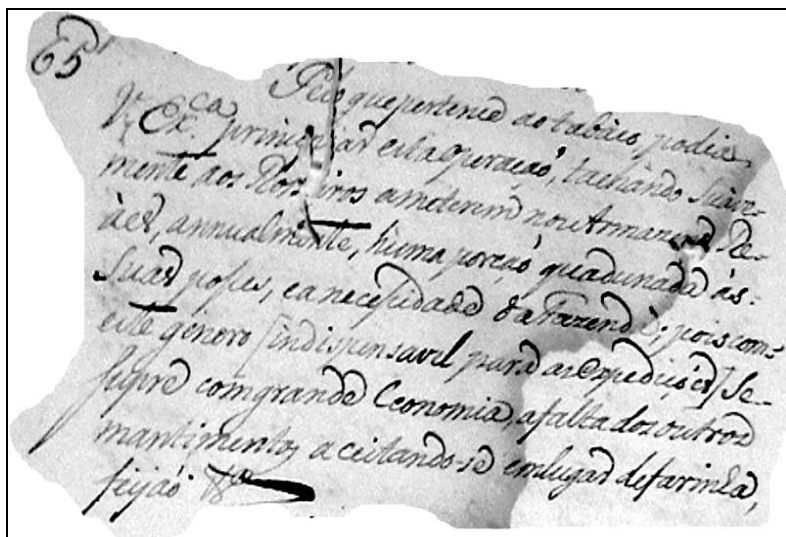 65
Pelo que pertence ao tabaco podia
V. Ex.ca principiar esta operação, tachando suave-
mente aos Rosseiros a meterem nos Armazens Re-
aes, annualmente, huma porção quadunada ás
suas posses, e a necessidade da Fazenda; pois com
este genero [indispensavel para as expedições] se
supre com grande economia, a falta dos outros
mantimentos aceitando-se em lugar de farinha,
feijaõ &a